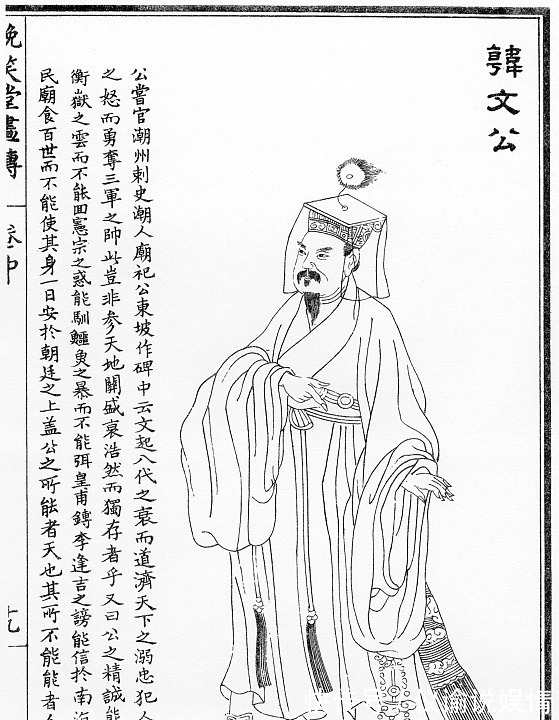 韓文公
公嘗官潮州刺史潮人廟祀公東坡作碑中云文起八代之衰而道濟天下之溺忠犯人
之怒而勇奪三軍之帥此豈非参天地關盛衰浩然而獨存者乎又曰公之精誠能
衡嶽之雲而不能回憲宗之惑能馴鱷魚之暴而不能弭皇甫鎛李逢吉之謗能信於南海
民廟食百世而不能使其身一日安於朝廷之上盖公之所能者天也其所不能能者人
晚笑堂畫傳
卷中
谕说娱情